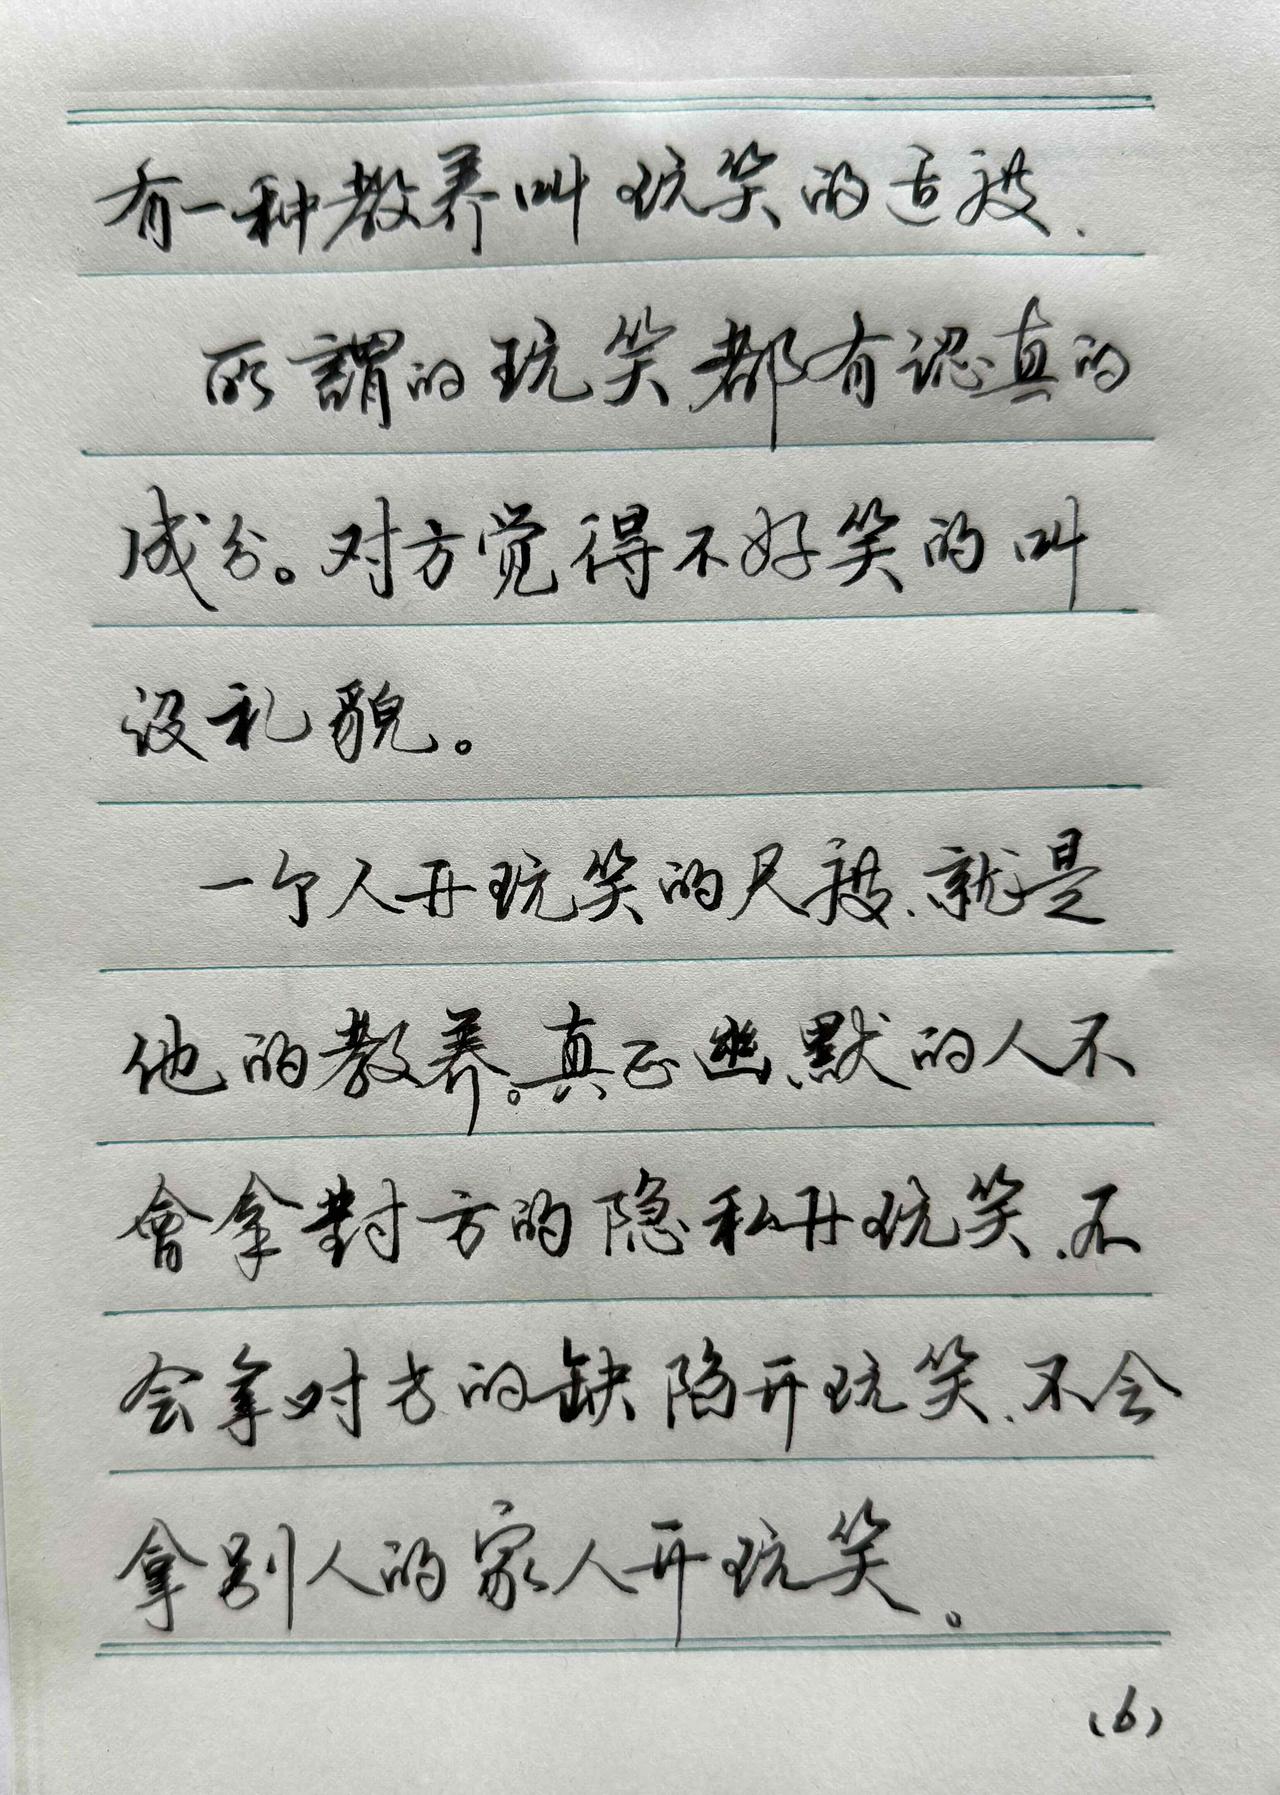 有一种教养叫玩笑的适度、
所謂的玩笑都有認真的
成分。对方觉得不好笑的叫
没礼貌。
一个人开玩笑的尺度、就是
他的教养。真正幽默的人不
會拿對方的隐私开玩笑、不
会拿对方的缺陷开玩笑、不会
拿别人的家人开玩笑。
(6)